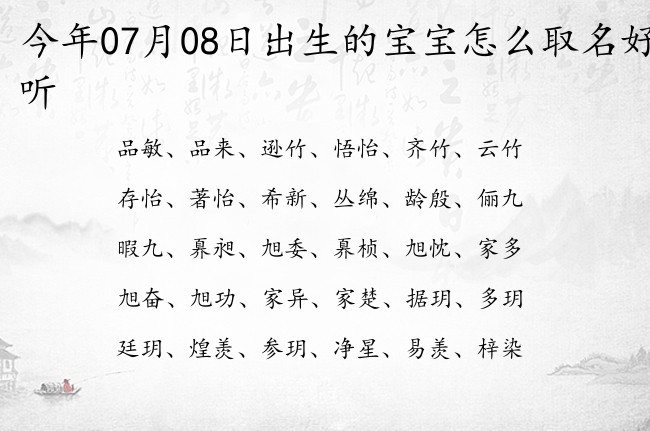 今年07月08日出生的宝宝怎么取名好
听
品敏、品来、逊竹、悟怡、齐竹、云竹
存怡、著怡、希新、丛绵、龄殷、俪九
暇九、冥昶、旭委、冥桢、旭忱、家多
旭奋、旭功、家异、家楚、据玥、多玥
廷玥、煌羡、参玥、净星、易羡、梓染